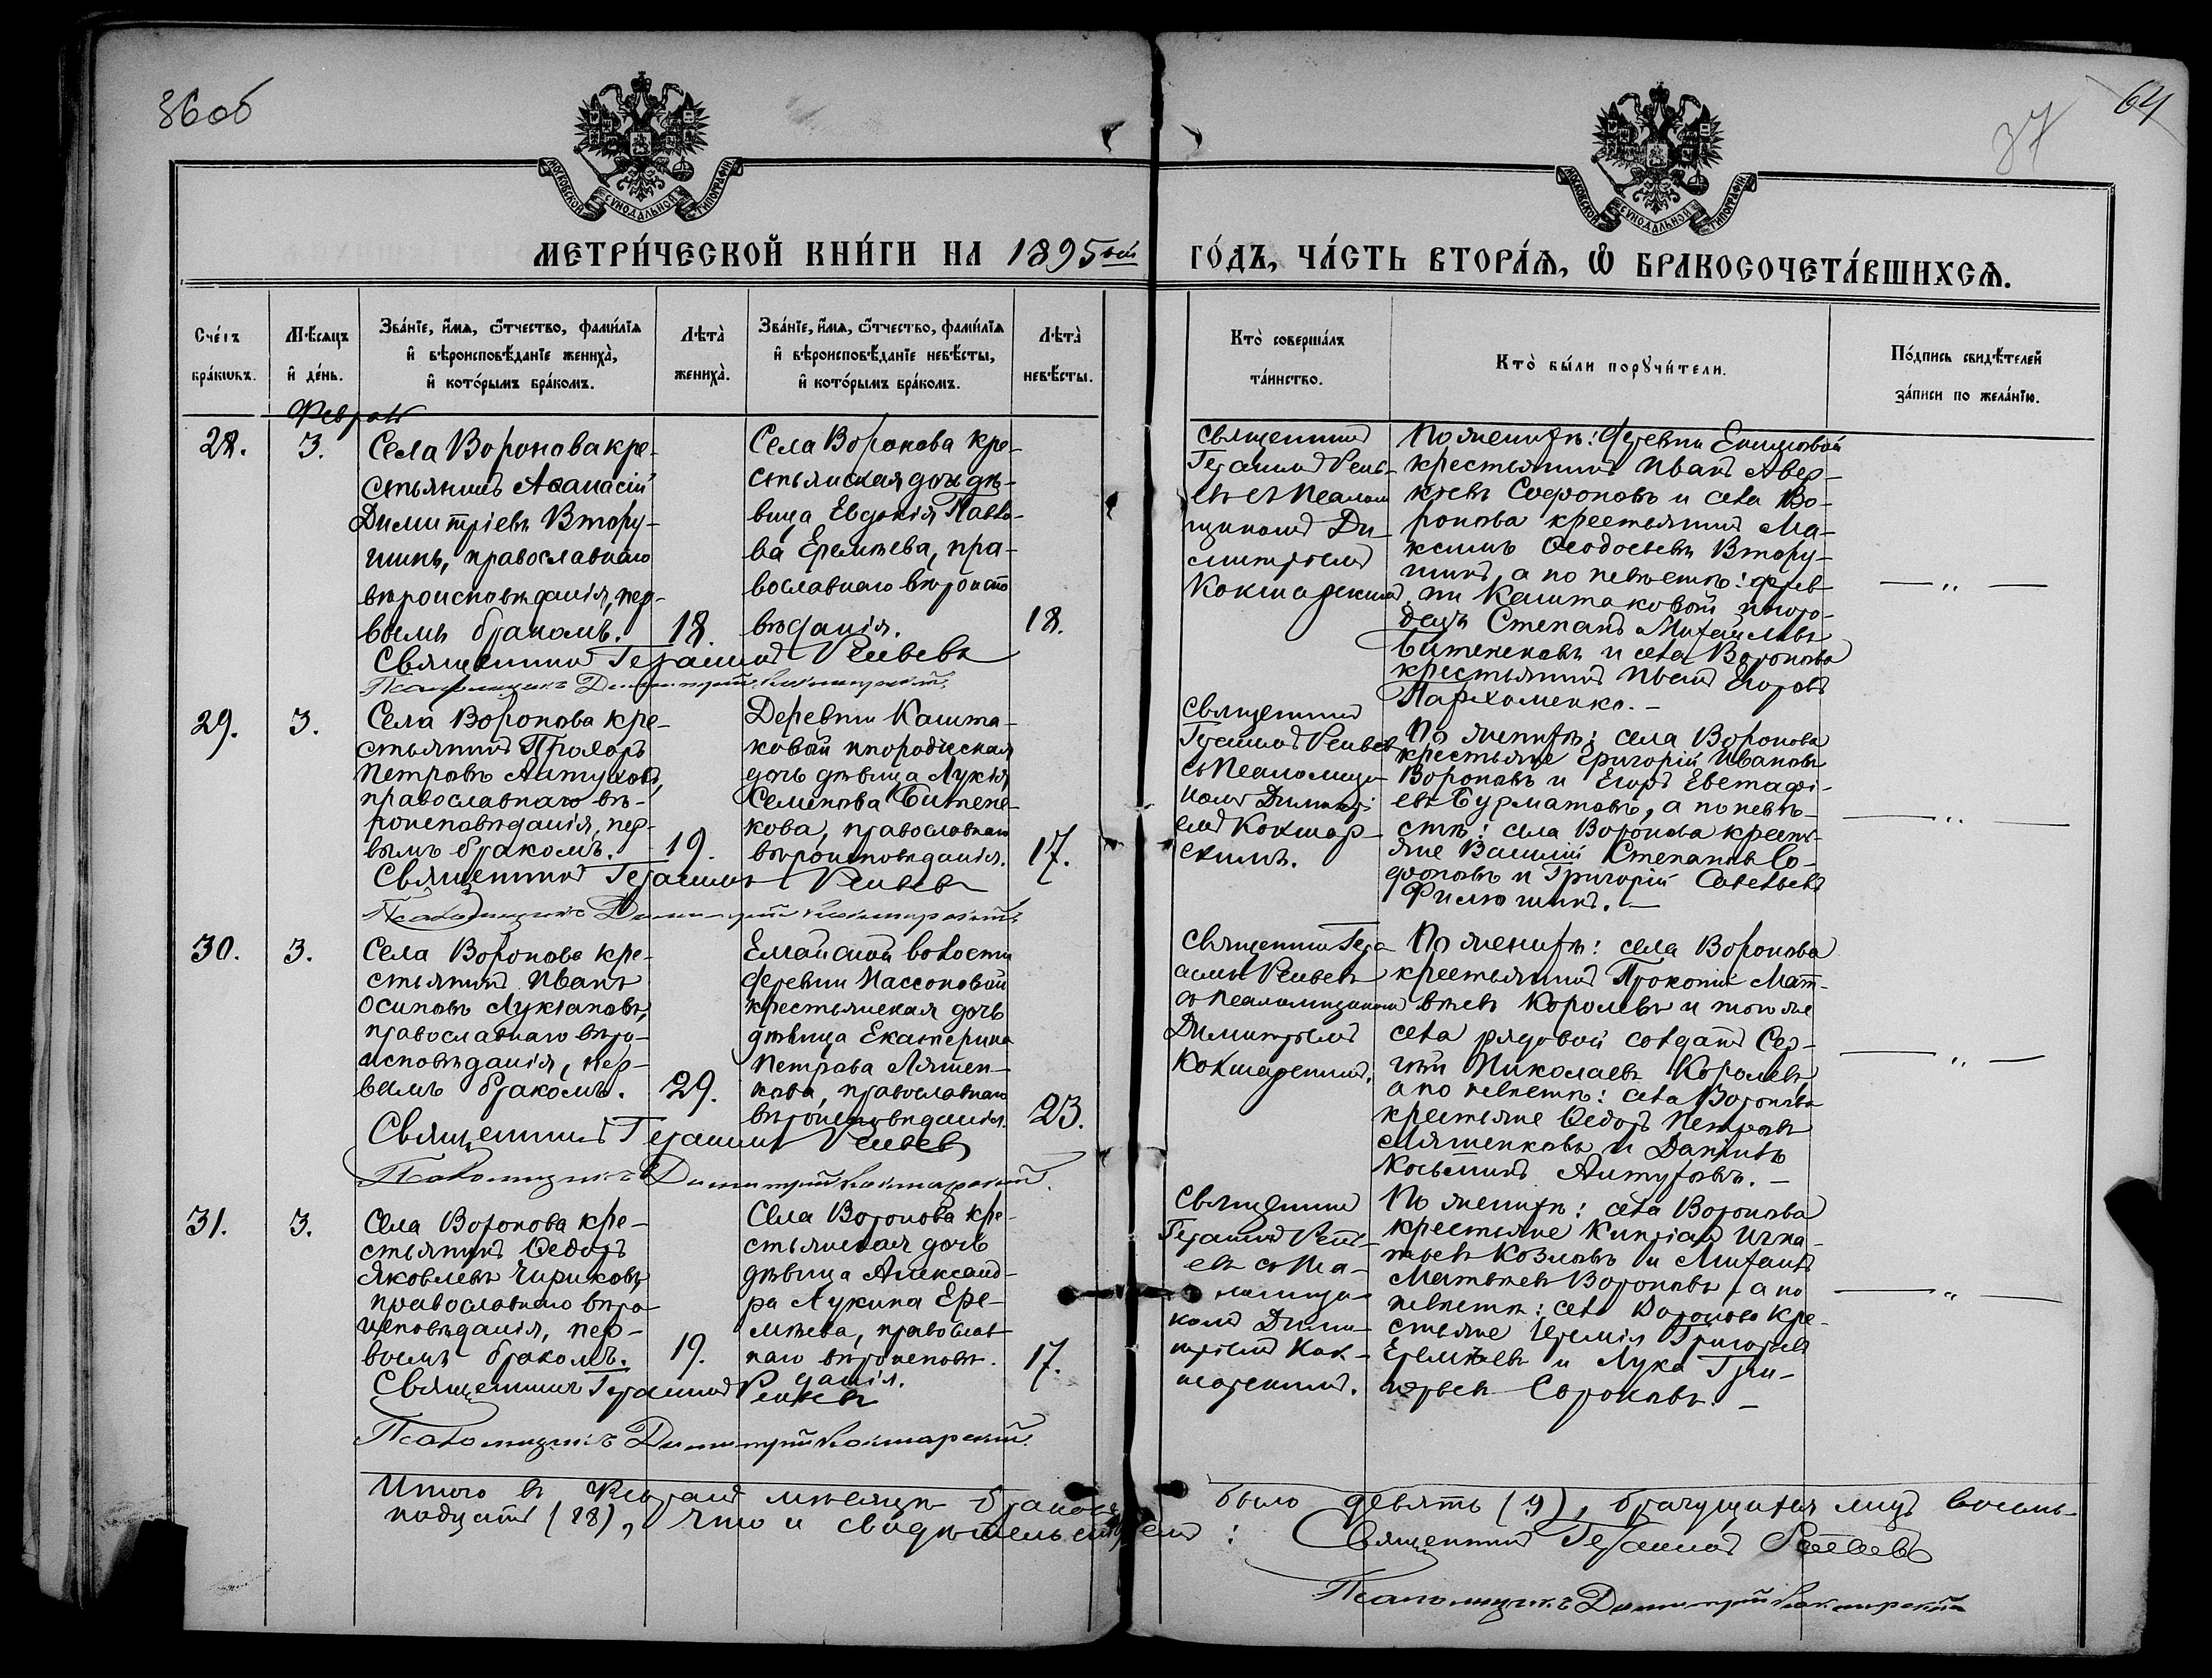 36 об
64
37
МОСКОВСКОЙ СѴНОДАЛЬНОЙ ТИПОГРАФІИ
МОСКОВСКОЙ СѴНОДАЛЬНОЙ ТИПОГРАФІИ
МЕТРИ́ЧЕСКОЙ КНИ́ГИ НА 1895ый ГО́ДЪ, ЧА́СТЬ ВТОРА́Ѧ, Ѽ БРАКОСОЧЕТА́ВШИХСѦ.
Сче́тъ
бра́кѡвъ.
Мѣ́сѧцъ
и҆ де́нь.
Зва́нїе, и҆́мѧ, ѻ҆́тчество, фами́лїѧ
и҆ вѣроисповѣ́данїе жениха̀,
и҆ кото́рымъ бра́комъ.
Лѣта̀
жениха̀.
Зва́нїе, и҆́мѧ, ѻ҆́тчество, фами́лїѧ
и҆ вѣроисповѣ́данїе невѣ́сты,
и҆ кото́рымъ бра́комъ.
Лѣта̀
невѣ́сты.
Кто̀ соверша́лъ
та́инство.
Кто̀ бы́ли порꙋчи́тели.
По́дпись свидѣ́телей
за́писи по жела́нїю.
Февраль
28.
3.
Села Воронова кре-
стьянинъ Аѳанасій
Димитріевъ Втору-
шинъ, православнаго
вѣроисповѣданія, пер-
вымъ бракомъ.
18.
Села Воронова кре-
стьянская дочь дѣ-
вица Евдокія Павло-
ва Еремѣева, пра-
вославнаго вѣроиспо
вѣданія.
18.
Священникъ Герасимъ
Псаломщикъ Димитрій Кокшарскій.
Священникъ
Герасимъ
съ Псалом
щикомъ Ди-
митріемъ
Кокшарскимъ.
По женихѣ: деревни
крестьянинъ Иванъ Авер-
кіевъ Софоновъ и села Во-
ронова крестьянинъ Ма-
ксимъ Ѳеодосьевъ Втору-
шинъ, а по невѣстѣ: дерев-
ни Каштаковой иноро-
децъ Степанъ Михайловъ
Битенековъ и села Воронова
крестьянинъ Егоровъ
Пархоменко. —
— „ —
29.
3.
Села Воронова кре-
стьянинъ Прохоръ
Петровъ Алтуховъ,
православнаго вѣ-
роисповѣданія, пер-
вымъ бракомъ.
19.
Деревни Кашта-
ковой инородческая
дочь дѣвица Лукія
Семенова Битене-
кова, православнаго
вѣроисповѣданія.
17.
Священникъ Герасимъ
Псаломщикъ Димитрій Кокшарскій.
Священникъ
Герасимъ
съ Псаломщи-
комъ Димитрі-
емъ Кокшар-
скимъ.
По женихѣ: села Воронова
крестьяне Григорій Ивановъ
Вороновъ и Егоръ Евстафі-
евъ Бурматовъ, а по невѣ-
стѣ: села Воронова кресть-
яне Василій Степановъ Со-
фоновъ и Григорій Савельевъ
Филюшинъ. —
— „ —
30.
3.
Села Воронова кре-
стьянинъ Иванъ
Осиповъ Лукіановъ,
православнаго вѣро-
исповѣданія, пер-
вымъ бракомъ.
29.
Елайской волости
деревни Нассоновой
крестьянская дочь
дѣвица Екатерина
Петрова Ляшен-
кова, православнаго
вѣроисповѣданія.
23.
Священникъ Герасимъ
Псаломщикъ Димитрій Кокшарскій.
Священникъ Гера-
симъ
съ псаломщикомъ
Димитріемъ
Кокшарскимъ.
По женихѣ: села Воронова
крестьянинъ Прокопій Мат-
вѣевъ Королевъ и того же
села рядовой солдатъ Сер-
гѣй Николаевъ Королевъ,
а по невѣстѣ: села Воронова
крестьяне Ѳедоръ Петровъ
Ляшенковъ и Даніилъ
Косьминъ Алтуховъ. —
— „ —
31.
3.
Села Воронова кре-
стьянинъ Ѳедоръ
Яковлевъ Чириковъ,
православнаго вѣро-
исповѣданія, пер-
вымъ бракомъ.
19.
Села Воронова кре-
стьянская дочь
дѣвица Александ-
ра Лукина Ере-
мѣева, православ-
наго вѣроисповѣ-
данія.
17.
Священникъ Герасимъ
Псаломщикъ Димитрій Кокшарскій.
Священникъ
Герасимъ
съ Пса-
ломщи-
комъ Дими-
тріемъ Кок-
шарскимъ.
По женихѣ: села Воронова
крестьяне Кипріанъ Игна-
тьевъ Козловъ и Михаилъ
Матвѣевъ Вороновъ, а по
невѣстѣ: села Воронова кре-
стьяне Іеремія Григорьевъ
Еремѣевъ и Лука Гри-
горьевъ Сороковъ. —
— „ —
Итого въ Февралѣ мѣсяцѣ браковъ было девять (9), брачущихся лицъ восемь-
надцать (18), что и свидѣтельствуемъ: Священникъ Герасимъ
Псаломщикъ Димитрій Кокшарскій